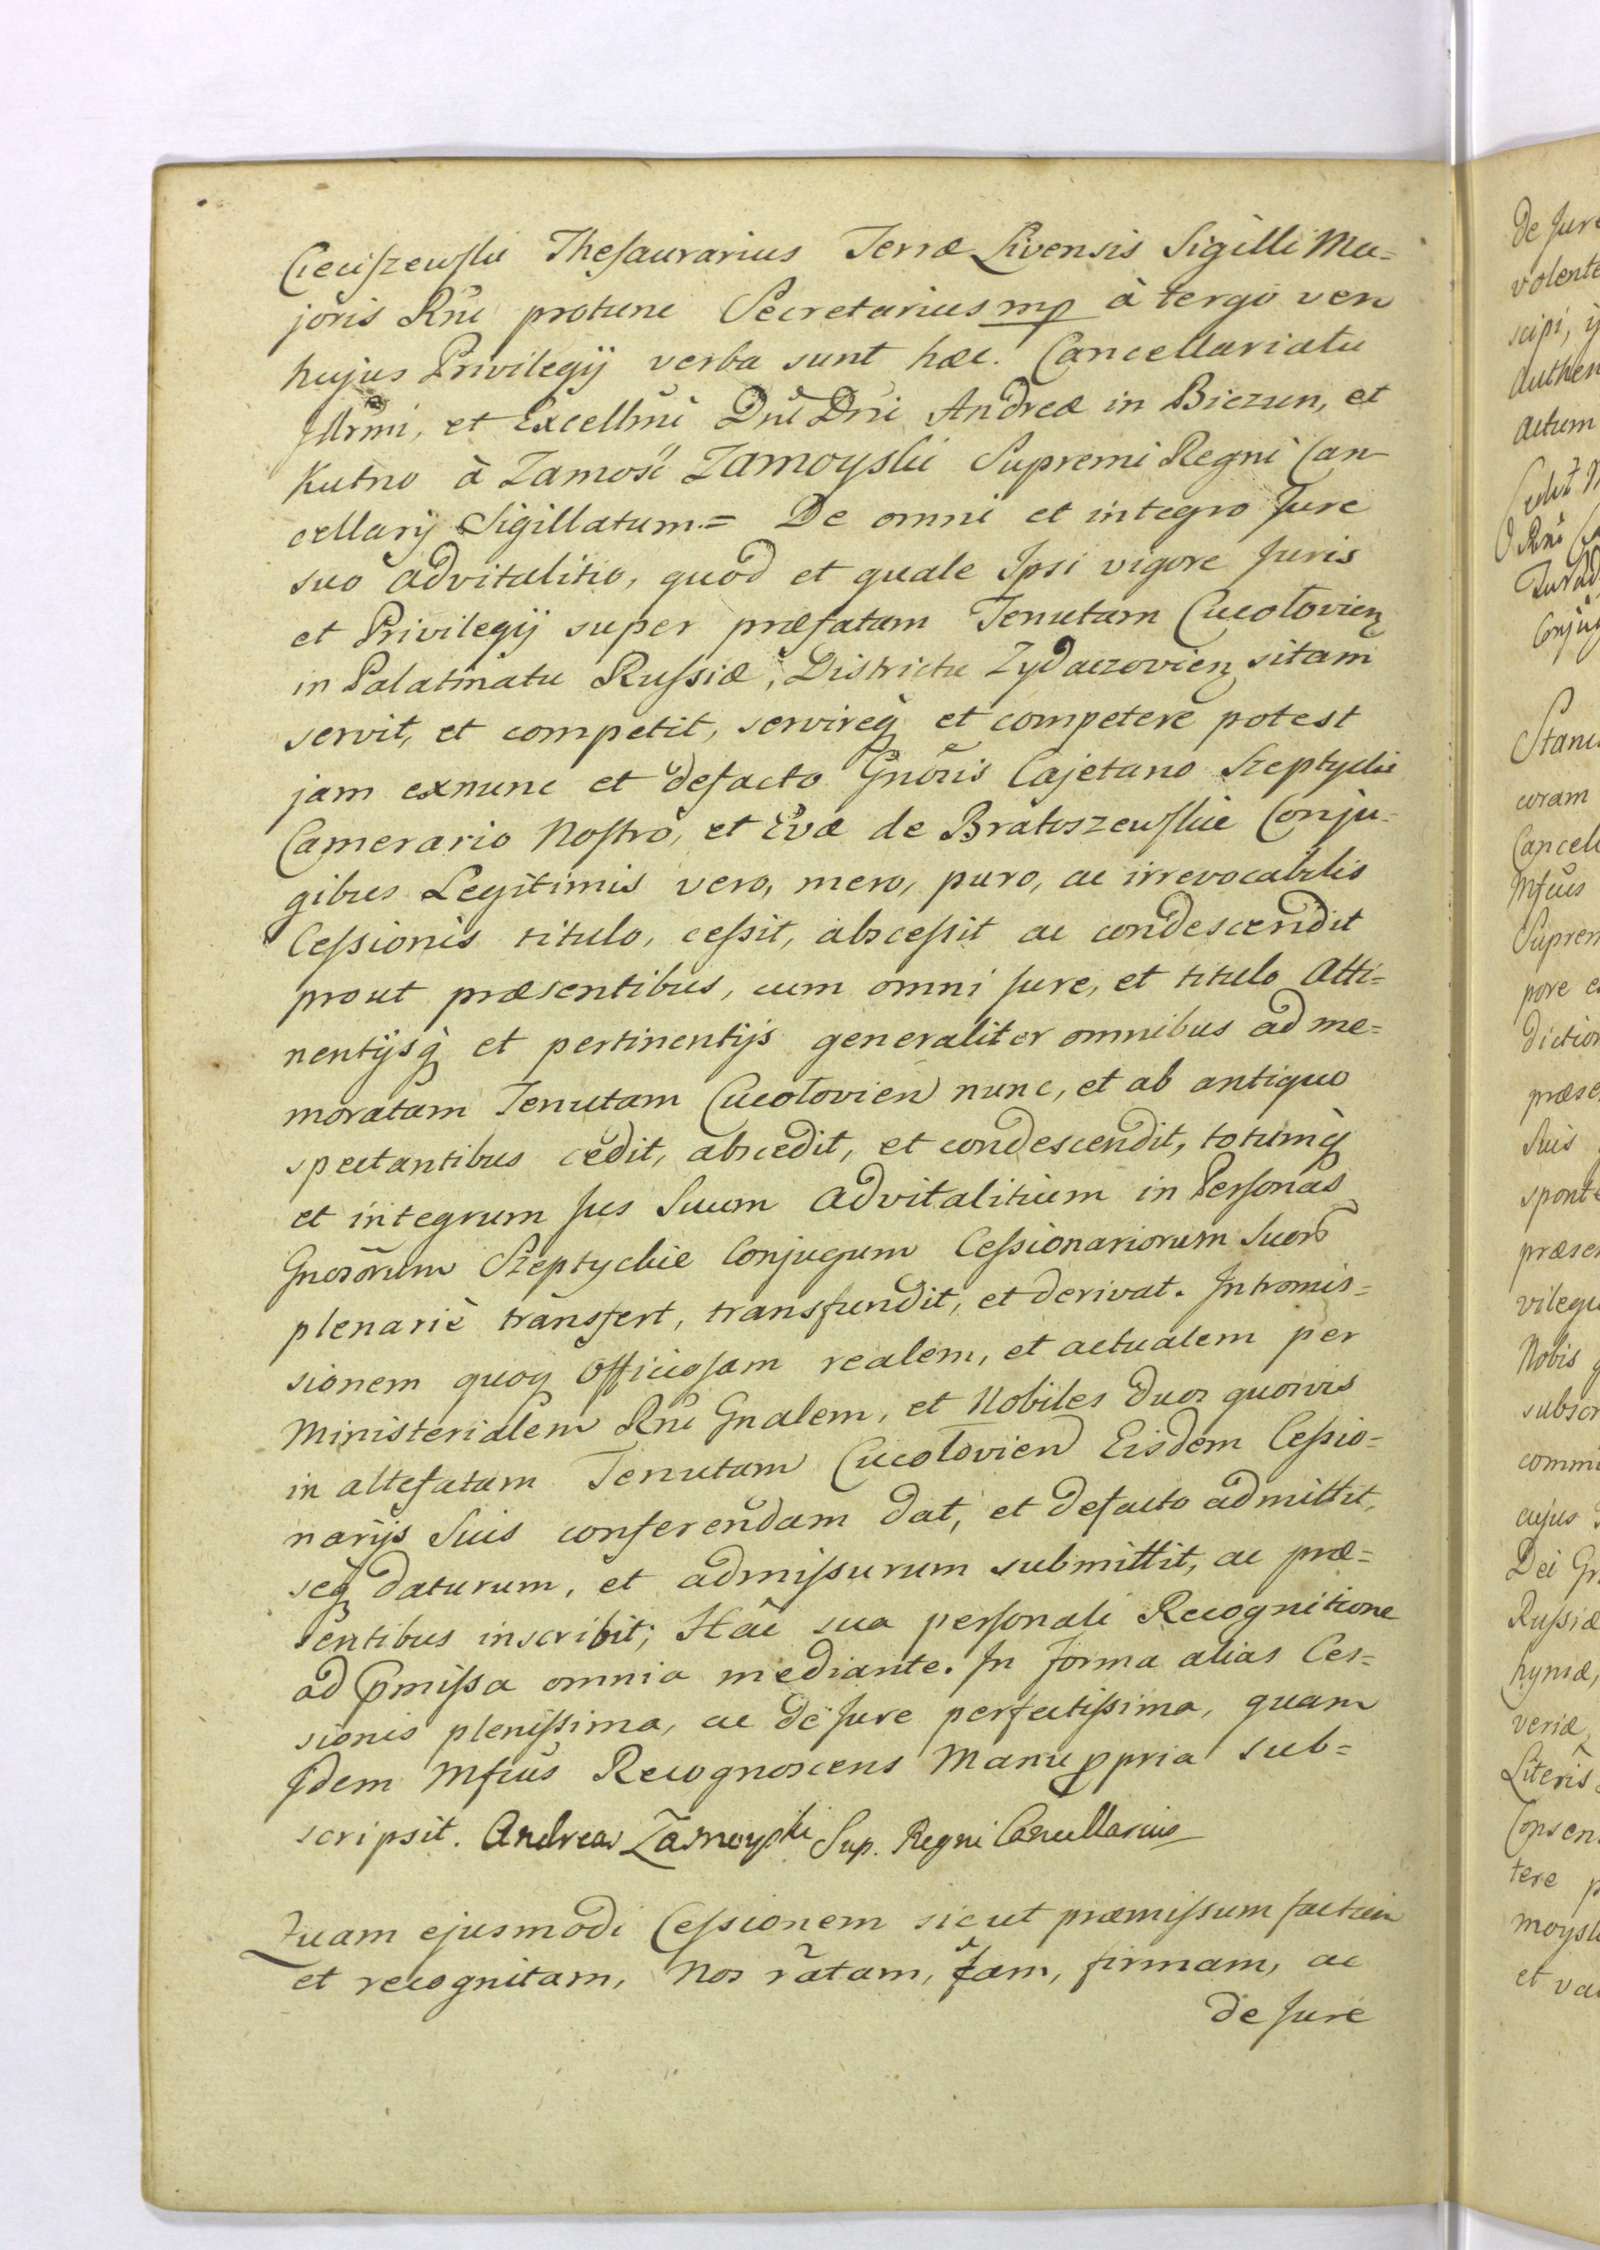 Cieciszewski Thesaurarius Terræ Livensis Sigilli Ma=
joris Rni protunc Secretarius mp à tergo vero
hujus Privilegij verba sunt hæc. Cancellariatu
Illrmi, et Excellmi Dni Dni Andreæ in Biezun, et
Kutno à Zamość Zamoyski Supremi Regni Can
cellarij Sigillatum.= De omni et integro Jure
suo advitalitio, quod et quale Ipsi vigore Juris
et Privilegij super præfatam Tenutam Cucołovien
in Palatinatu Russiæ, Districtu Zydaczovien sitam
servit, et competit, servireq̃ et competere potest
jam exnunc et defacto Gnosis Cajetano Szeptycki
Camerario Nostro, et Evæ de Bratoszewskie Conju=
gibus Legitimis vero, mero, puro, ac irrevocabilis
Cessionis titulo, cessit, abscessit ac condescendit
prout præsentibus, cum omni Jure, et titulo Atti=
nentijsq̃ et pertinentijs generaliter omnibus ad me=
moratam Tenutam Cucołovien nunc, et ab antiquo
spectantibus cedit, abscedit, et condescendit, totumq̃
et integrum Jus Suum advitalitium in Personas
Gnosorum Szeptyckie Conjugum Cessionariorum Suor
plenariè transfert, transfundit, et derivat. Intromis=
sionem quoq̃ Officiosam realem, et actualem per
Ministerialem Rni Gnalem, et Nobiles duos quosvis
in altefatam Tenutam Cucołovien Eisdem Cessio=
narijs Suis conferendam dat, et defacto admittit,
seq̃ daturum, et admissurum submittit, ac præ=
sentibus inscribit; Hâc sua personali Recognitione
ad p̃missa omnia mediante. In forma alias Ces=
sionis plenissima, ac de Jure perfectissima, quam
Idem Mfcus Recognoscens Manu ppria sub=
scripsit. Andreas Zamoyski Sup. Regni Cancellarius
Quam ejusmodi Cessionem sicut præmissum factam
et recognitam, Nos ratam, gratam, firmam, ac
de Jure